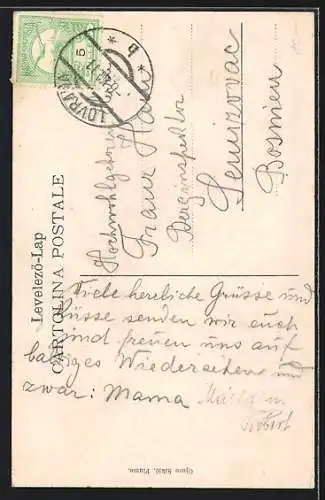 Levelező-Lap
CARTOLINA POSTALE
5
LOVRANA
* b *
Hochwohlgeboren
Franz
Berginspektor
Semizovac
Bosnien
Viele herzliche Grüsse und
Küsse senden wir euch
und freuen uns auf
baldiges Wiedersehen und
zwar: Mama
Robert
Fiume.